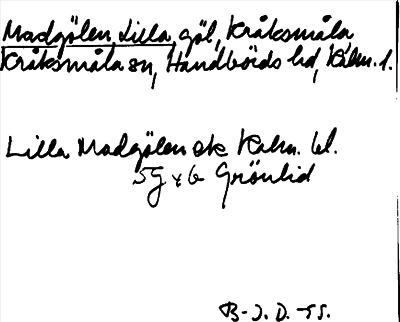 Madgölen, Lilla, göl, Kråksmåla,
Kråksmåla sn, Handbörds hd, Kalm. l.
Lilla Madgölen ek Kalm. bl.
5G x6 Grönlid
B-J. D. -55.